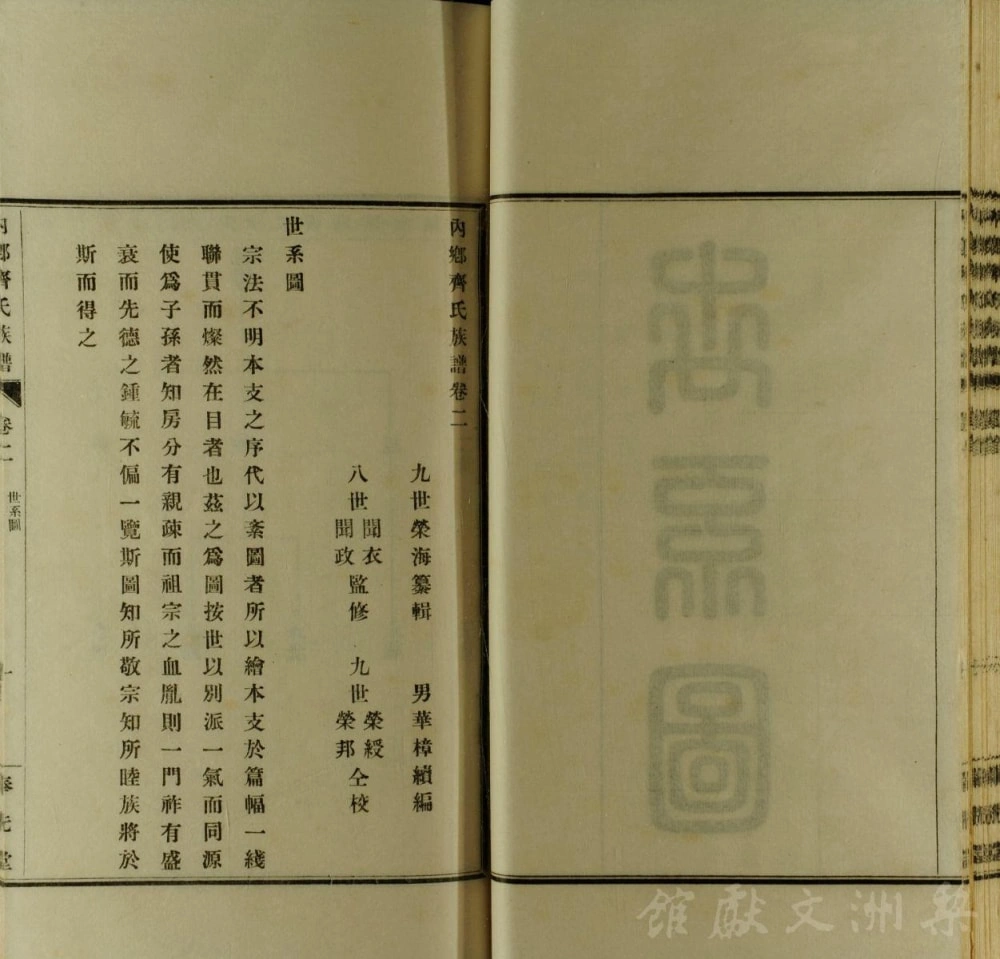 世系圖
內鄉齊氏族譜卷二
九世榮海纂輯 男華樟續編
八世聞衣聞政監修 九世榮綬榮邦仝校
世系圖
宗法不明本支之序代以紊圖者所以繪本支於篇幅一綫
聯貫而燦然在目者也茲之爲圖按世以別派一氣而同源
使爲子孫者知房分有親疎而祖宗之血胤則一門祚有盛
衰而先德之鍾毓不偏一覽斯圖知所敬宗知所睦族將於
斯而得之
內鄉齊氏族譜 卷二 世系圖 一 奉先堂
梨洲文獻館